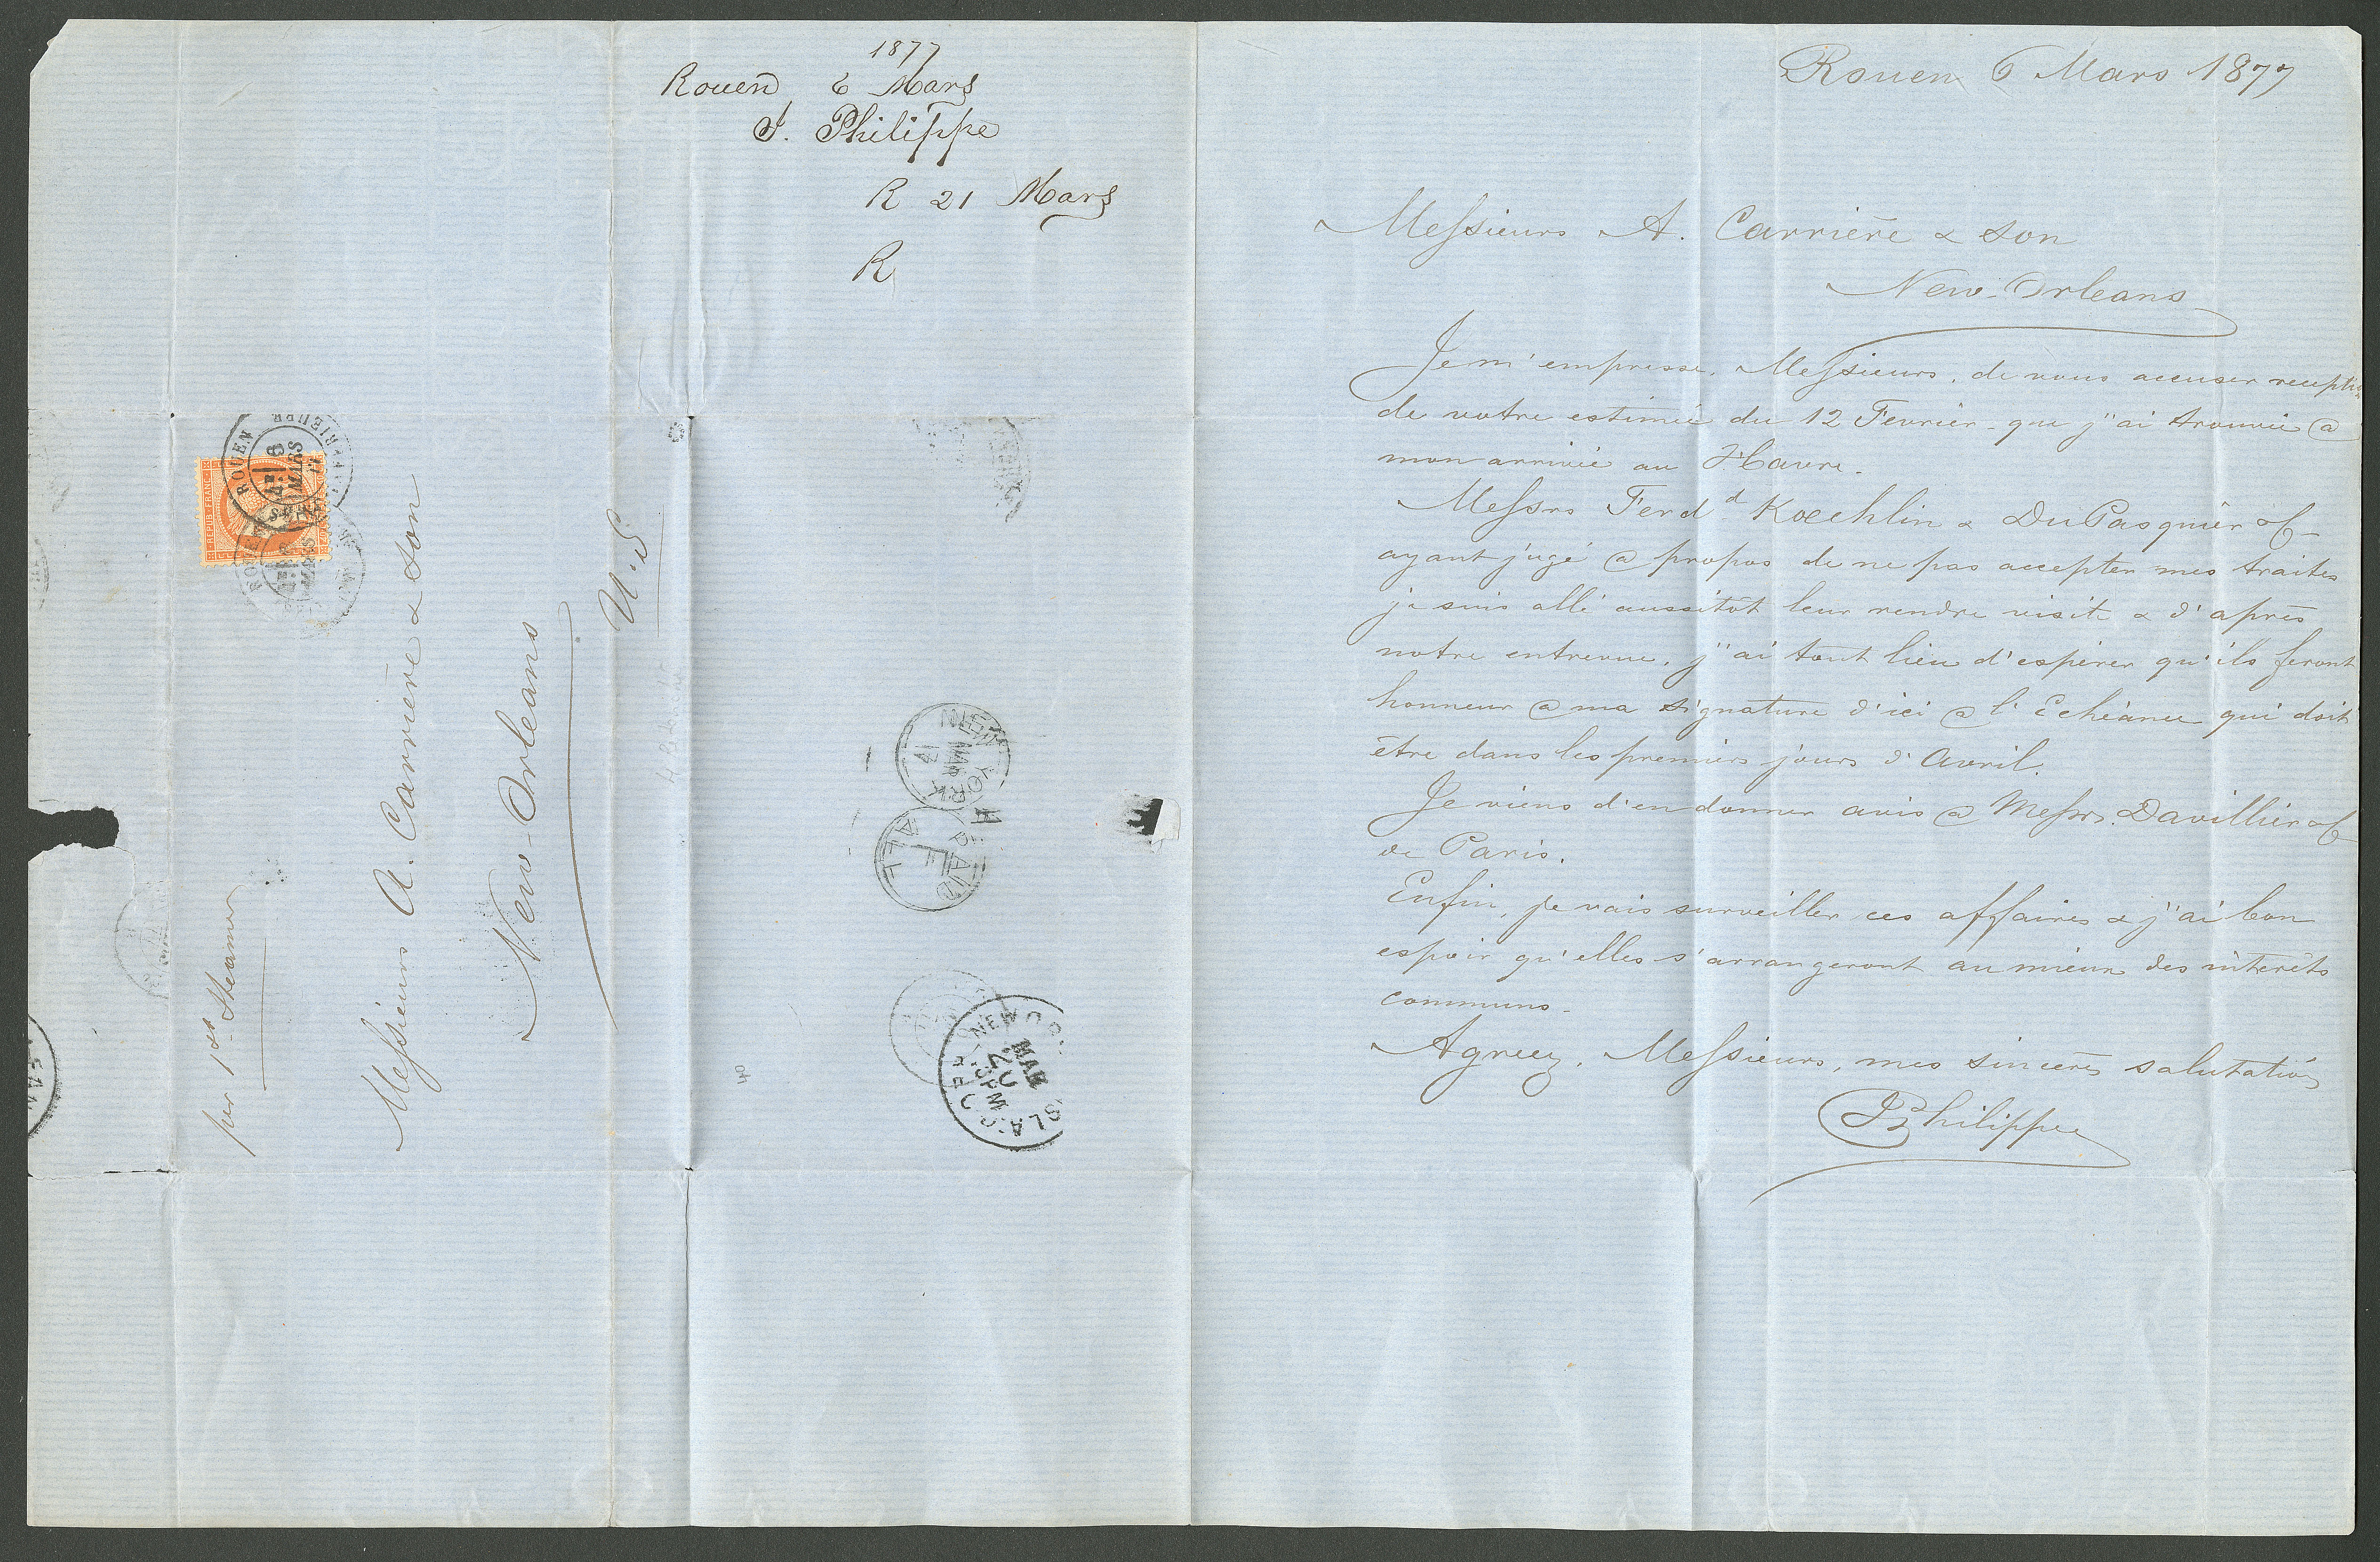 1877
Rouen 6 Mars
J. Philippe
R 21 Mars
R
REPUB. FRANC.
ROUEN
8
MARS
77
per 1st Steamer
Messieurs A. Carrière & Son
New-Orleans
U.S
NEW YORK
MAR
PAID
ALL
NEW OR
MAR
20
LA.
40
Rouen 6 Mars 1877
Messieurs A. Carrière & Son
New-Orleans
Je m'empresse, Messieurs, de vous accuser reception
de votre estimée du 12 Fevrier que j'ai trouvée @
mon arrivée au Havre.
Messrs Ferdd Koechlin & DuPasquier & Co
ayant jugé @ propos de ne pas accepter mes traites
je suis allé aussitôt leur rendre visite & d'après
notre entrevue, j'ai tout lieu d'espérer qu'ils feront
honneur @ ma signature d'ici @ l'Echéance qui doit
être dans les premiers jours d'Avril.
Je viens d'en donner avis @ Messrs. Davillier & Co
de Paris.
Enfin, je vais surveiller ces affaires & j'ai bon
espoir qu'elles s'arrangeront au mieux des intérêts
communs.
Agreez, Messieurs, mes sincères salutations
JPhilippe